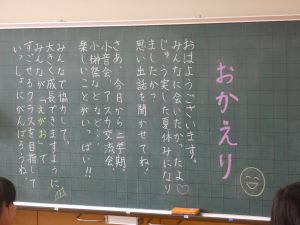 おかえり
おはようございます。
みんなに会いたかったよ♡
じゅう実した夏休みになり
ましたか？
思い出話を聞かせてね！
さあ、今日から二学期。
小音会、アスカ交流会、
小柳祭などなど…、
楽しいことがいっぱい!!
みんなで協力して、
大きく成長できますように
みんなが「えがお」で
すごせるクラスを目指して
いっしょにがんばろうね。